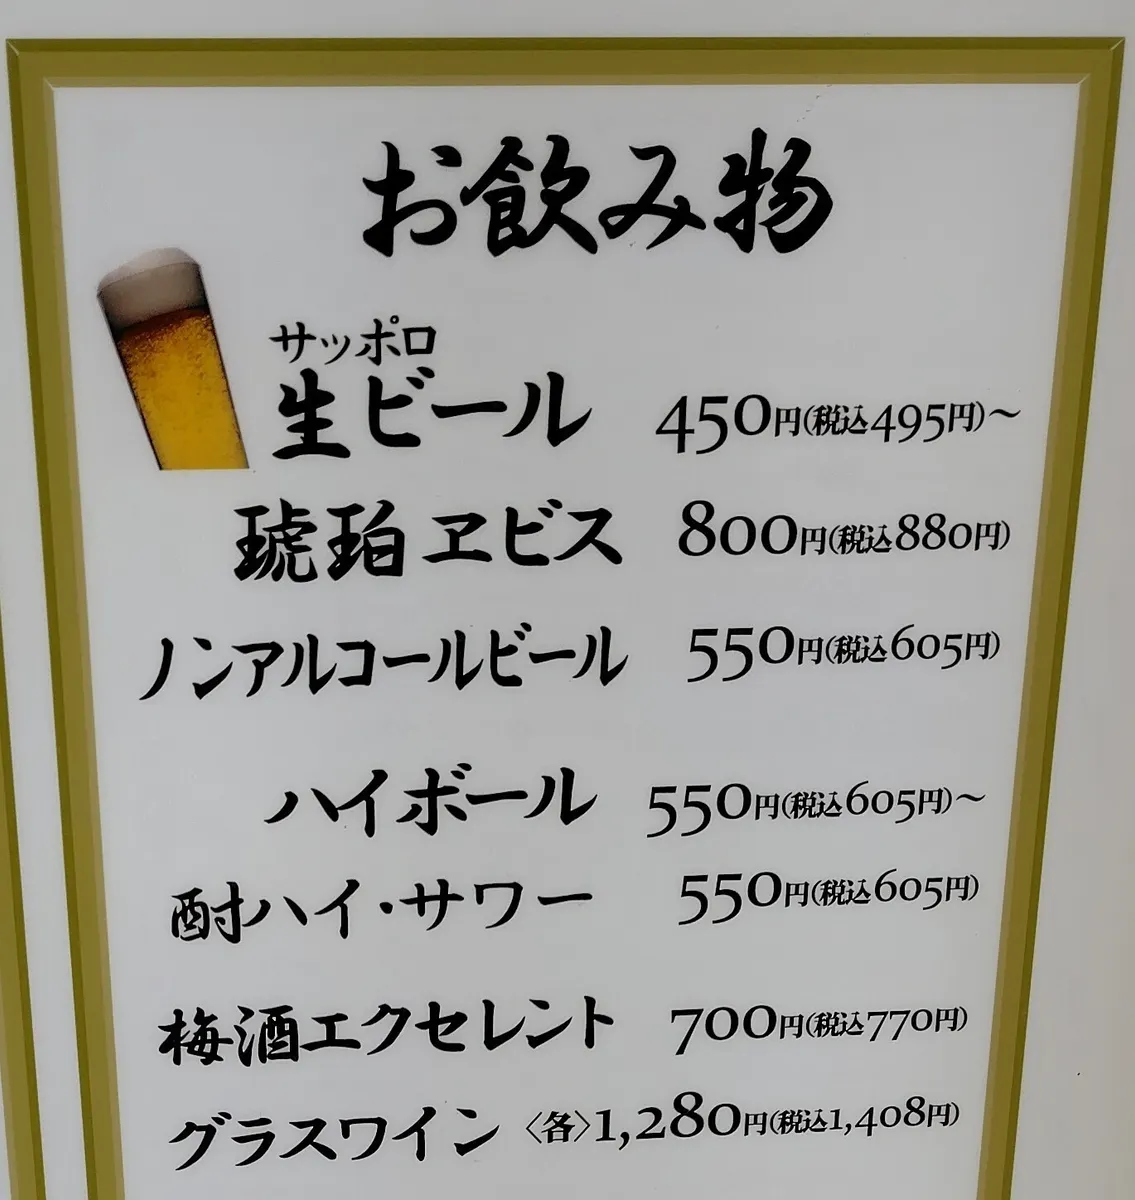 お飲み物
サッポロ
生ビール 450円(税込495円)~
琥珀ヱビス 800円(税込880円)
ノンアルコールビール 550円(税込605円)
ハイボール 550円(税込605円)~
酎ハイ・サワー 550円(税込605円)
梅酒エクセレント 700円(税込770円)
グラスワイン〈各〉1,280円(税込1,408円)